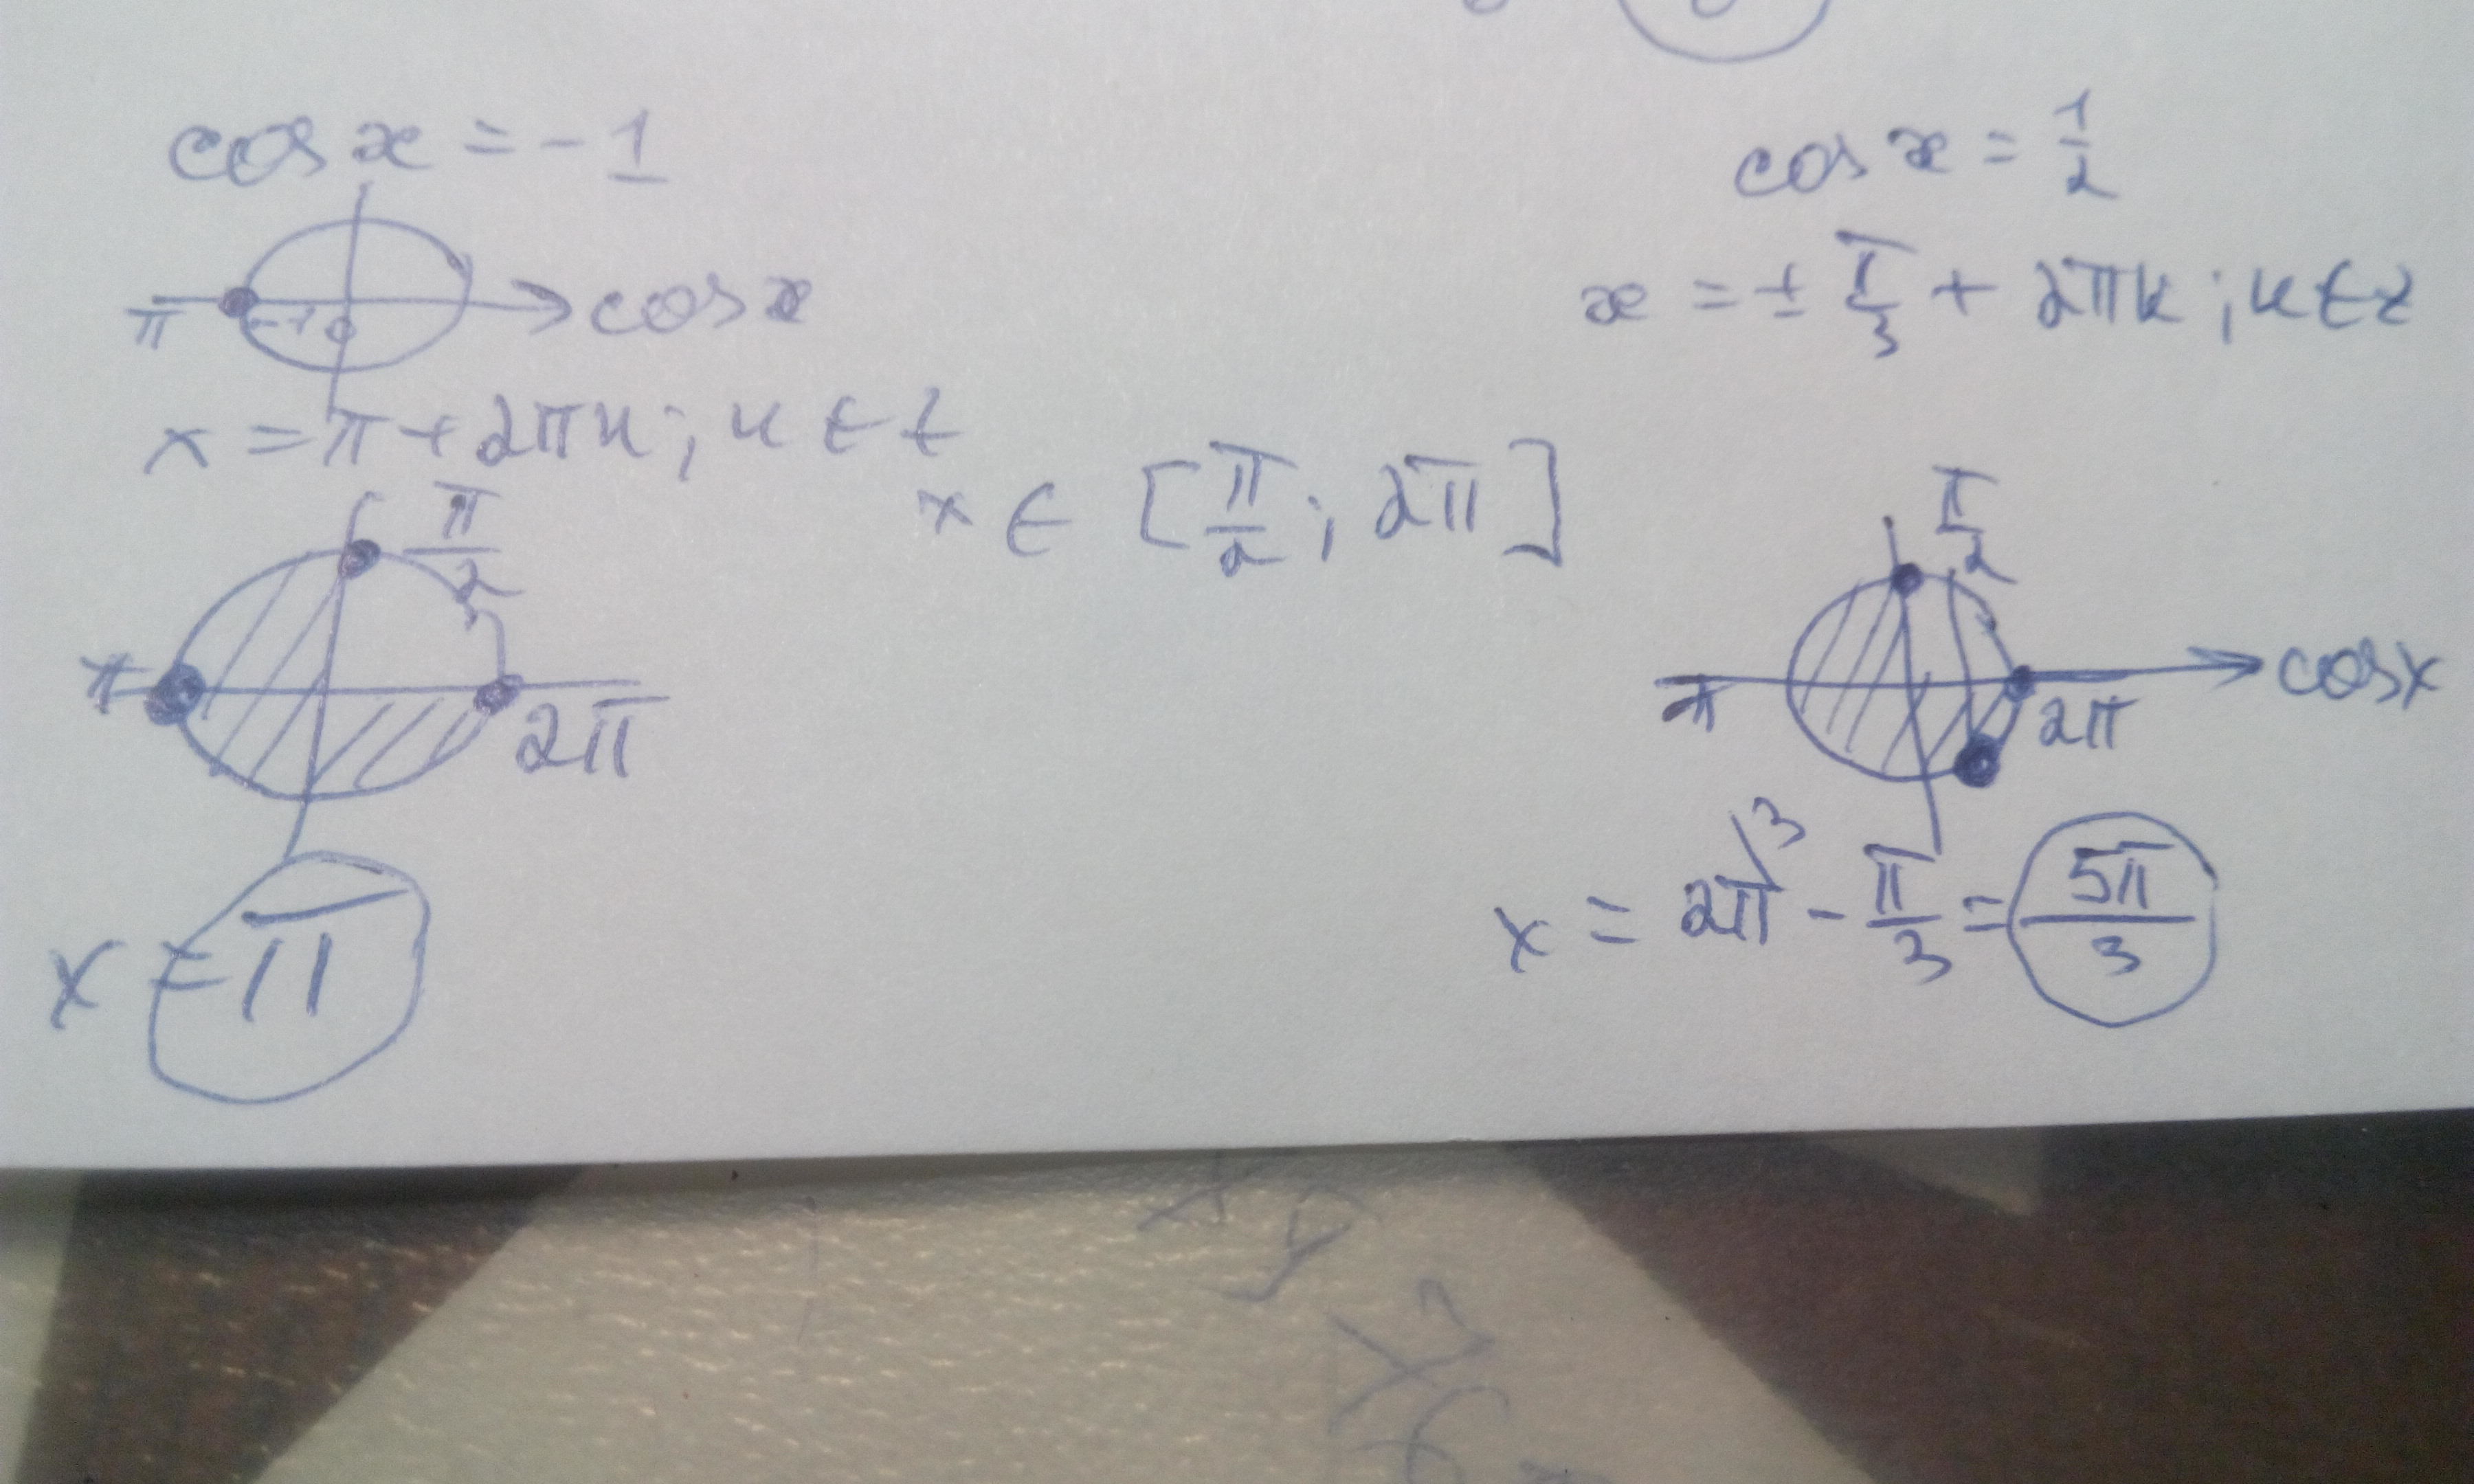 cos x = -1
π -1 0 cos x
x = π + 2πk; k ∈ Z
π/2
π 2π
x = π
x ∈ [π/2; 2π]
cos x = 1/2
x = ± π/3 + 2πk; k ∈ Z
π/2
π 2π cos x
x = 2π\3 - π/3 = 5π/3